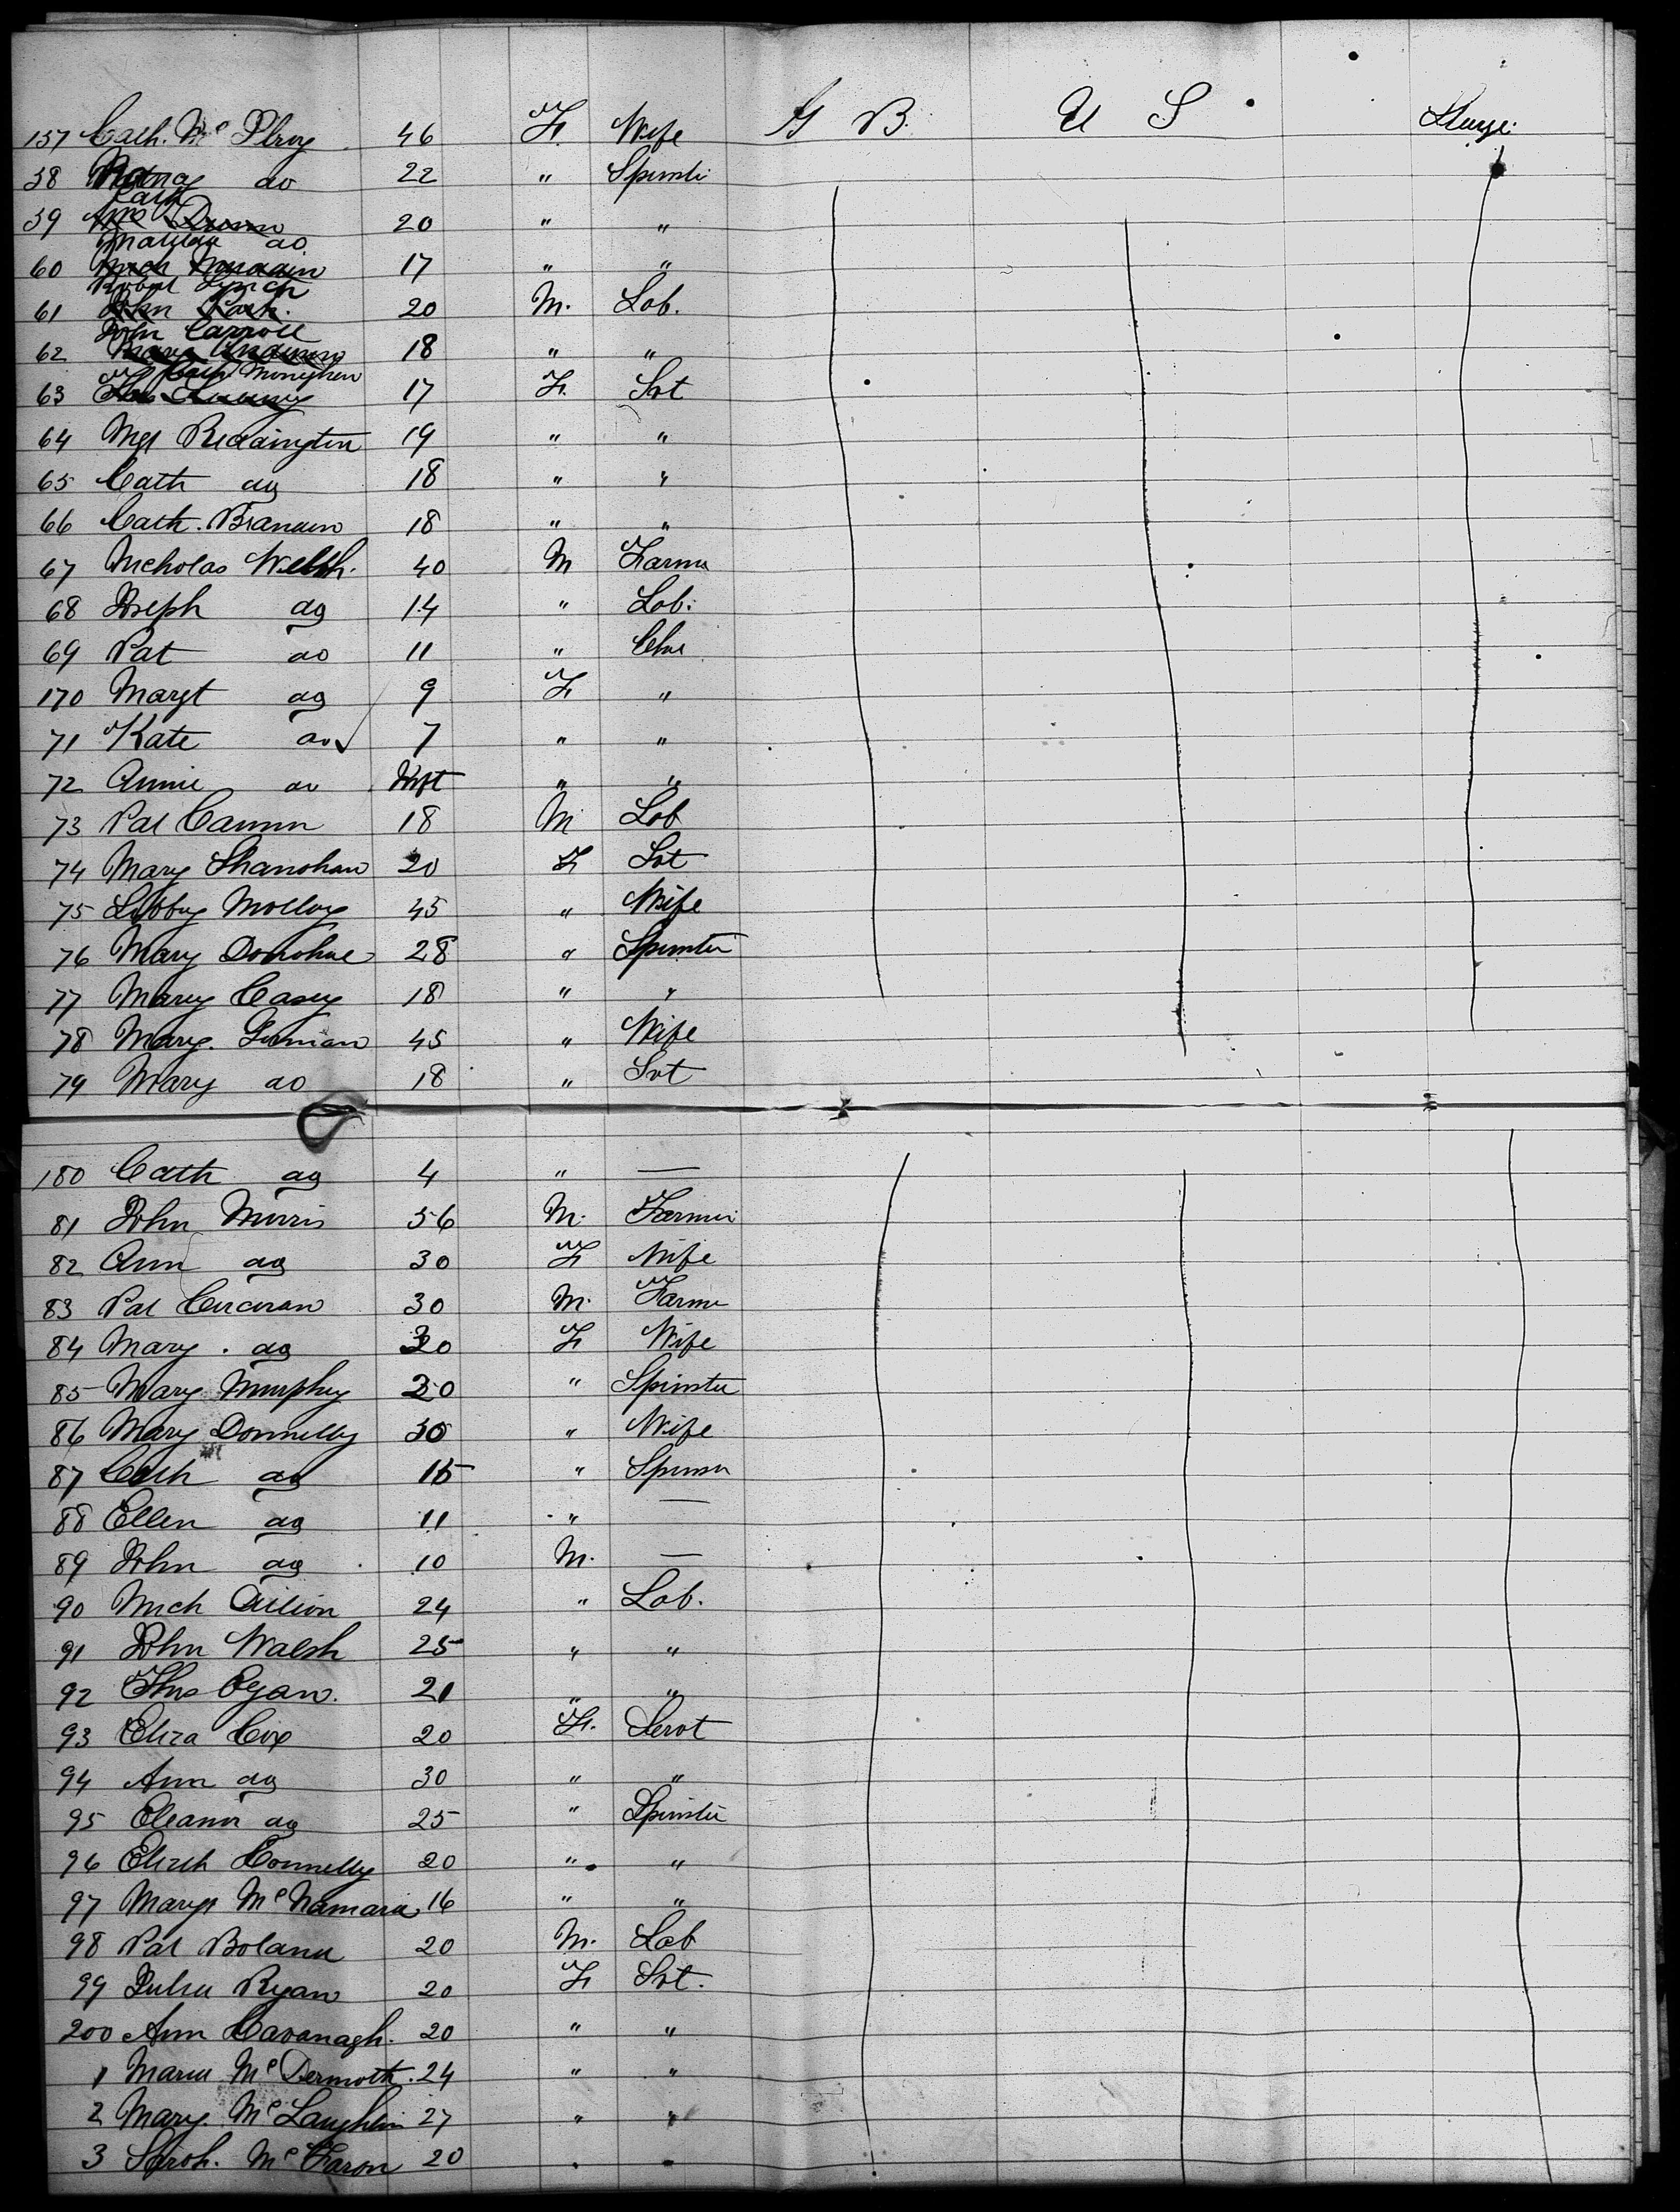 157 Cath. Mc Elroy 46 F. Wife G B. U S Steerge
58 do 22 " Spinster
59 Cath 20 " "
Matilda do
60 17 " "
Robert Lynch
61 20 M. Lab.
John Carroll
62 18 " "
Cath Moneghen
63 17 F. Svt
64 Mgt Reddington 19 " "
65 Cath do 18 " "
66 Cath. Brannen 18 " "
67 Nicholas Welsh. 40 M Farmer
68 Joseph do 14 " Lab.
69 Pat do 11 " Chd
170 Margt do 9 F "
71 Kate do 7 " "
72 Annie do Inft " "
73 Pat Cannon 18 M Lab
74 Mary Shanahan 20 F Svt
75 Libby Molloy 45 " Wife
76 Mary Donohue 28 " Spinster
77 Mary Casey 18 " "
78 Mary. 45 " Wife
79 Mary do 18 " Svt
180 Cath do 4 " —
81 John Morris 56 M. Farmer
82 Ann do 30 F Wife
83 Pat Corcoran 30 M. Farmer
84 Mary. do 30 F Wife
85 Mary Murphy 20 " Spinster
86 Mary Donnelly 30 " Wife
87 Cath do 15 " Spinster
88 Ellen do 11 " —
89 John do 10 M. —
90 Mich Dillion 24 " Lab.
91 John Walsh 25 " "
92 Thos Egan. 21 " "
93 Eliza Cox 20 F. Servt
94 Ann do 30 " "
95 Eleanor do 25 " Spinster
96 Elizth Connelly 20 " "
97 Margt McNamara 16 " "
98 Pat Boland 20 M. Lab
99 Julia Ryan 20 F Svt.
200 Ann Cavanagh. 20 " "
1 Maria McDermoth. 24 " "
2 Mary. McLaughlin 27 " "
3 Sarah. McFaron 20 " "